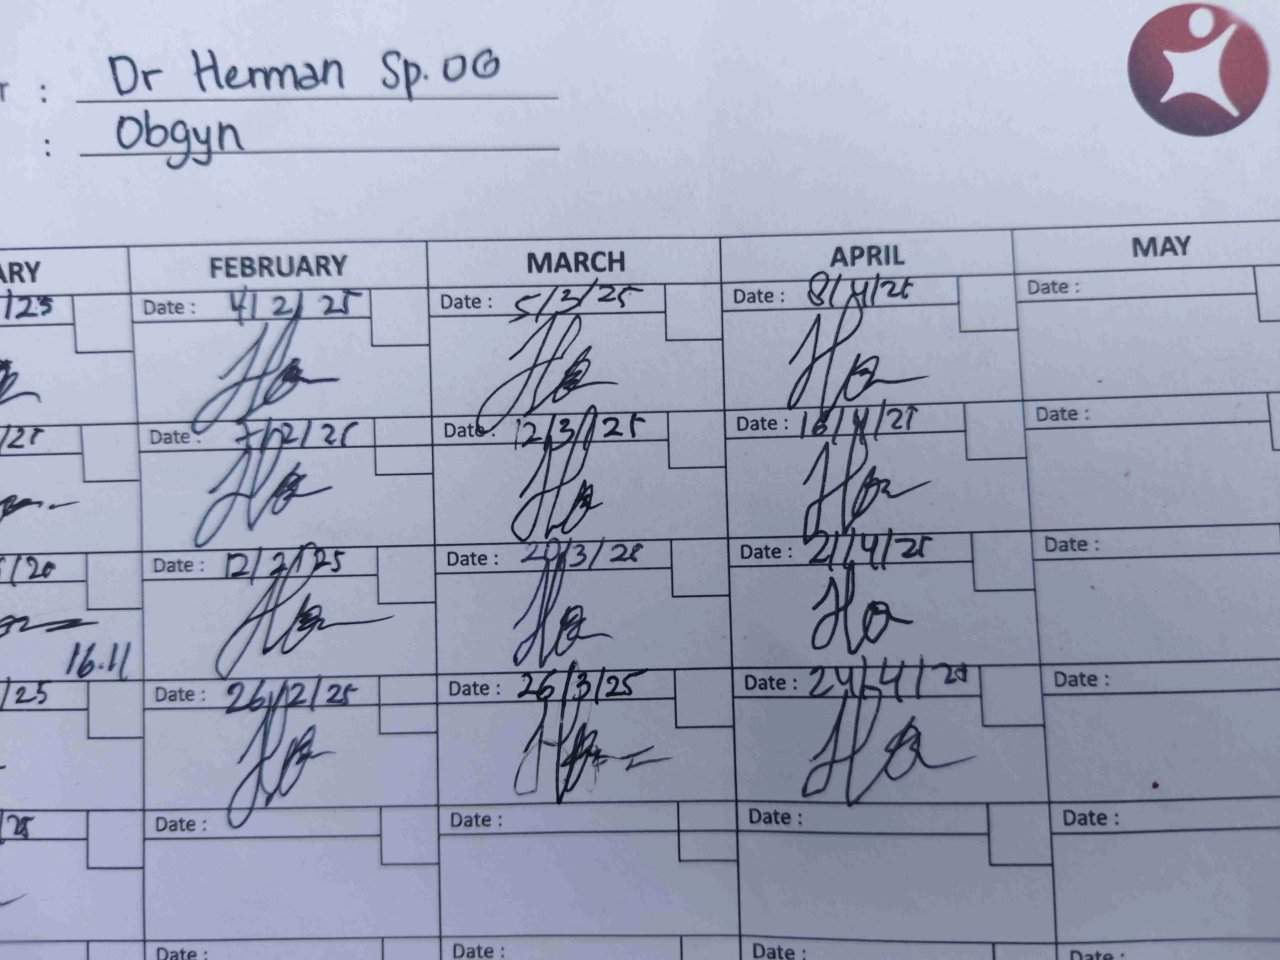 : Dr Herman Sp. OG
: Obgyn
ARY FEBRUARY MARCH APRIL MAY
/25 Date : 4/2/25 Date : 5/3/25 Date : 8/4/25 Date :
/25 Date : 7/2/25 Date : 12/3/25 Date : 16/4/25 Date :
/20 Date : 12/2/25 Date : /3/25 Date : 21/4/25 Date :
16.11
/25 Date : 26/2/25 Date : 26/3/25 Date : 24/4/25 Date :
/25 Date : Date : Date : Date :
Date : Date : Date : Date :